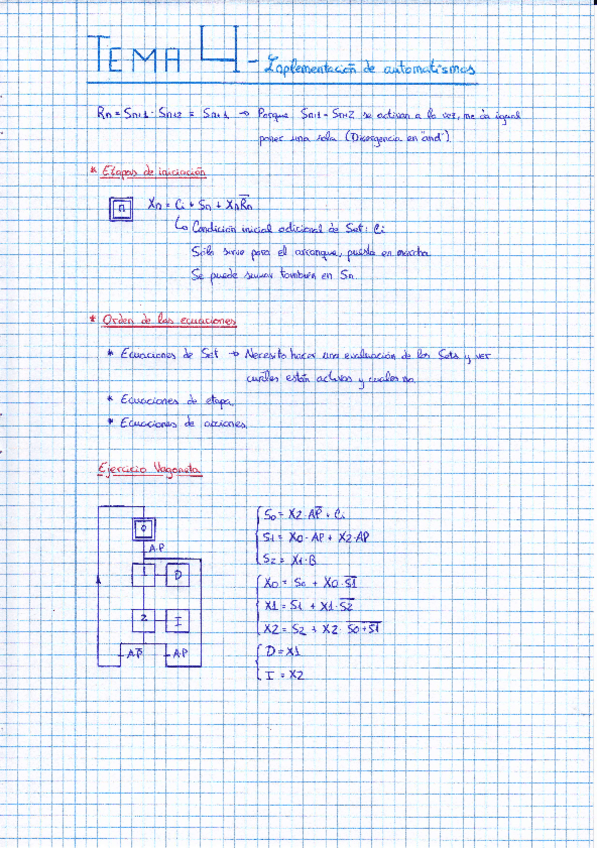 TEMA 4 - Implementación de automatismos
Rn = Sn+1 · Sn+2 = Sn+1 → Porque Sn+1 - Sn+2 se activan a la vez, me da igual
poner una sola (Divergencia en "and")
* Etapas de iniciación
n Xn = Ci + Sn + Xn R̅n̅
↳ Condición inicial adicional de Set: Ci
Sólo sirve para el arranque, puesta en marcha
Se puede sumar también en Sn
* Orden de las ecuaciones
* Ecuaciones de Set → Necesito hacer una evaluación de los Sets y ver
cuáles están activos y cuales no.
* Ecuaciones de etapa.
* Ecuaciones de acciones.
Ejercicio Vagoneta
0
A.P
1 D
2 I
A̅P̅ AP
S0 = X2 · A̅P̅ + Ci
S1 = X0 · AP + X2 · AP
S2 = X1 · B
X0 = S0 + X0 · S̅1̅
X1 = S1 + X1 · S̅2̅
X2 = S2 + X2 · S̅0̅+̅S̅1̅
D = X1
I = X2